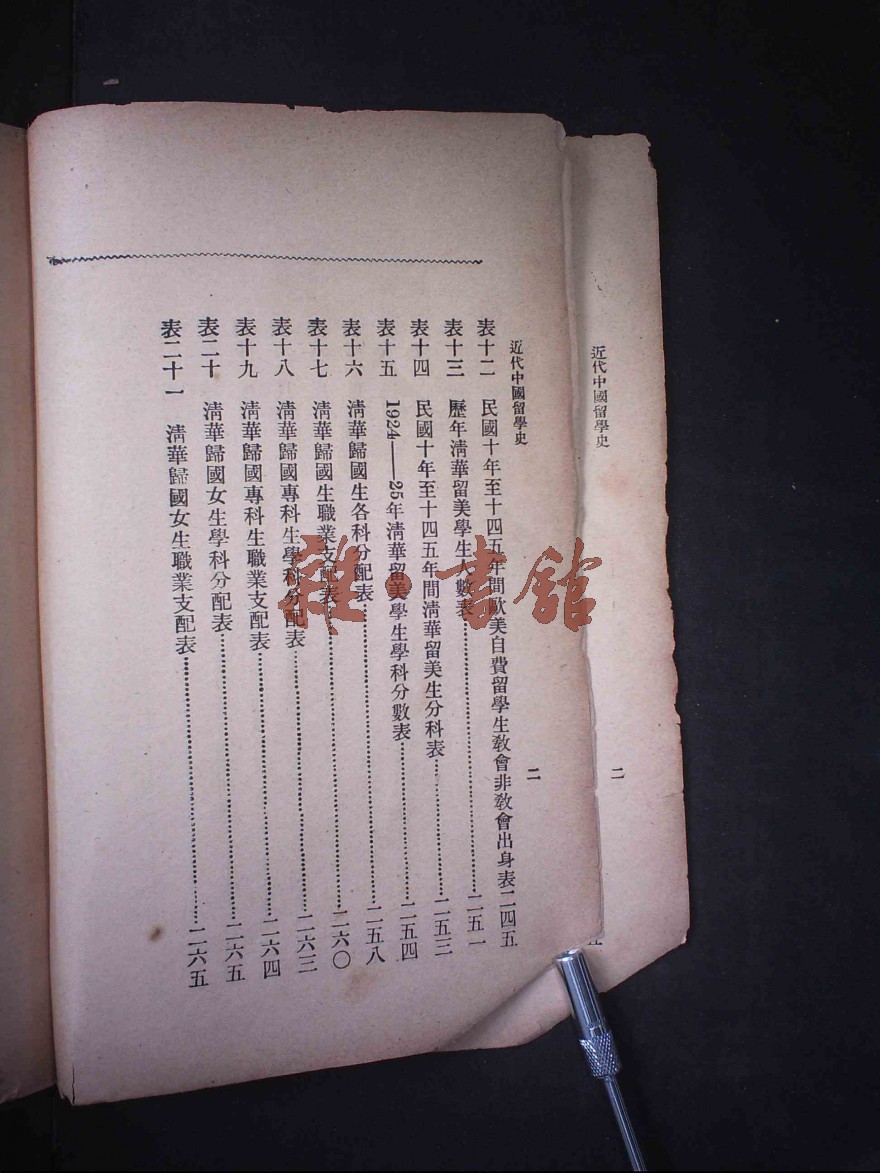 近代中國留學史
二
近代中國留學史
二
表十二 民國十年至十四五年間歐美自費留學生教會非教會出身表二四五
表十三 歷年淸華留美學生人數表……二五一
表十四 民國十年至十四五年間淸華留美生分科表……二五三
表十五 1924——25年淸華留美學生學科分數表……二五四
表十六 淸華歸國生各科分配表……二五八
表十七 淸華歸國生職業支配表……二六〇
表十八 淸華歸國專科生學科分配表……二六三
表十九 淸華歸國專科生職業支配表……二六四
表二十 淸華歸國女生學科分配表……二六五
表二十一 淸華歸國女生職業支配表……二六五
雜·書館